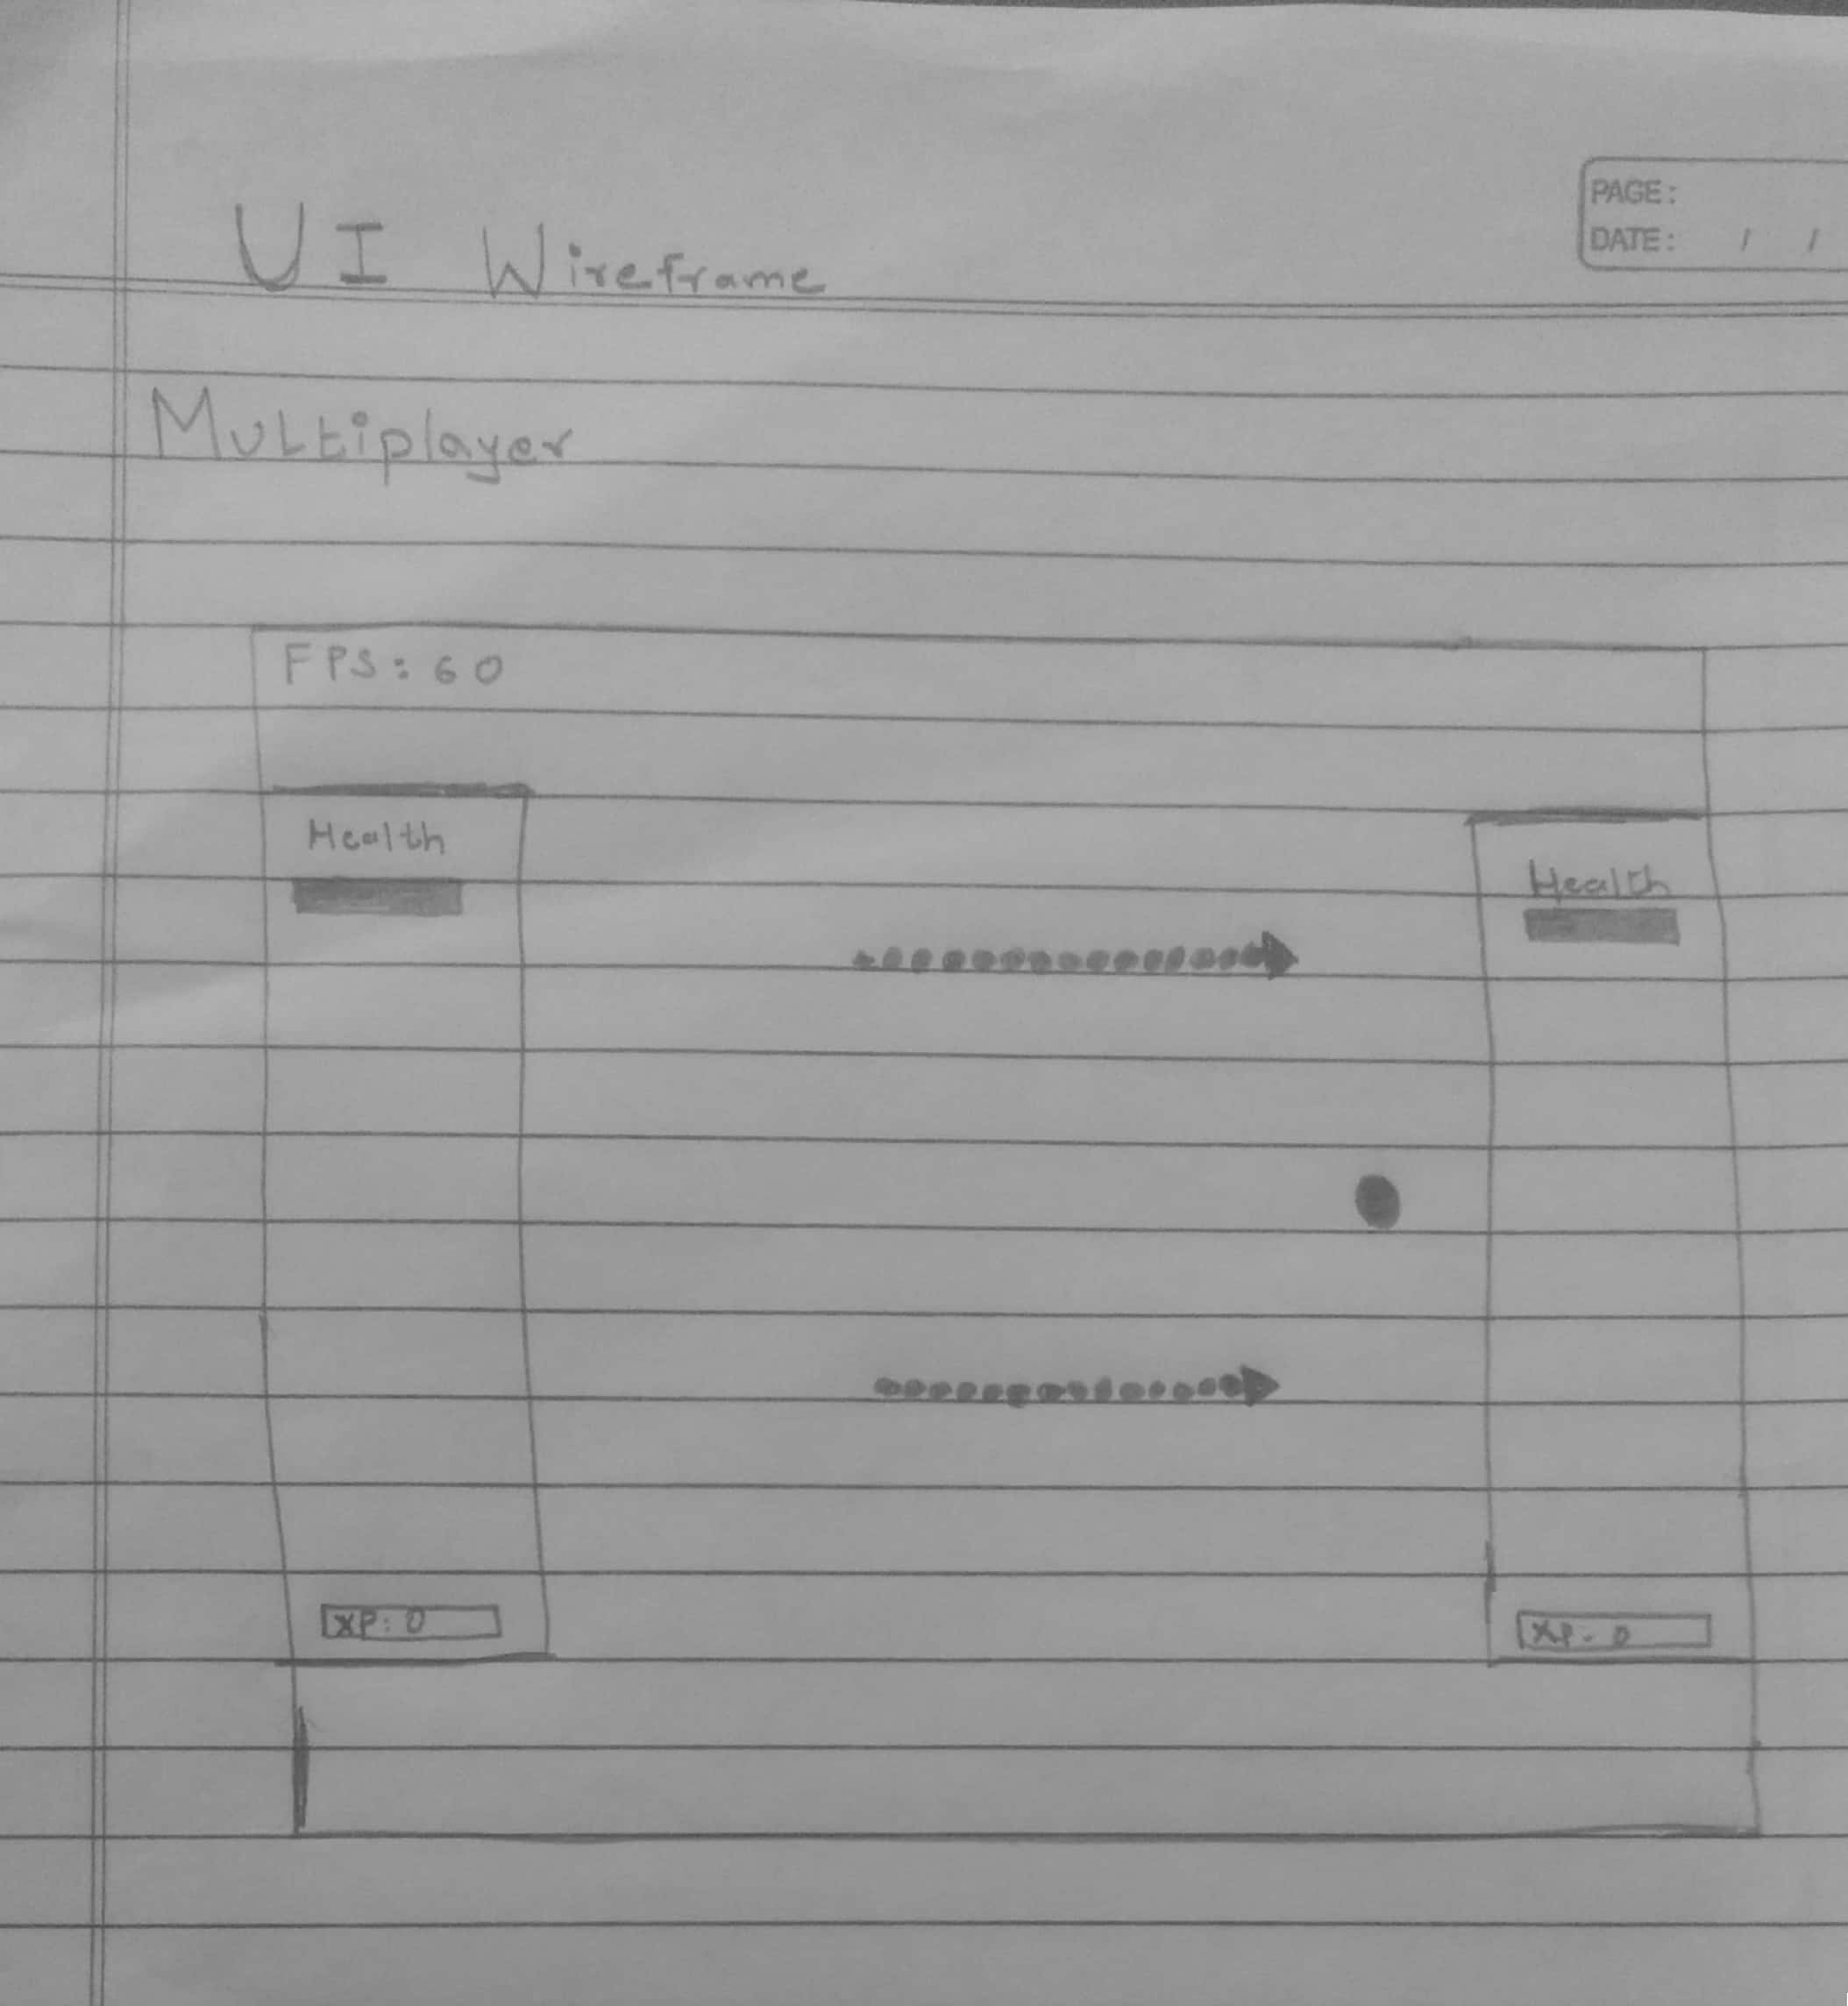 PAGE:
DATE: / /
UI Wireframe
Multiplayer
FPS: 60
Health
Health
XP: 0
XP. 0